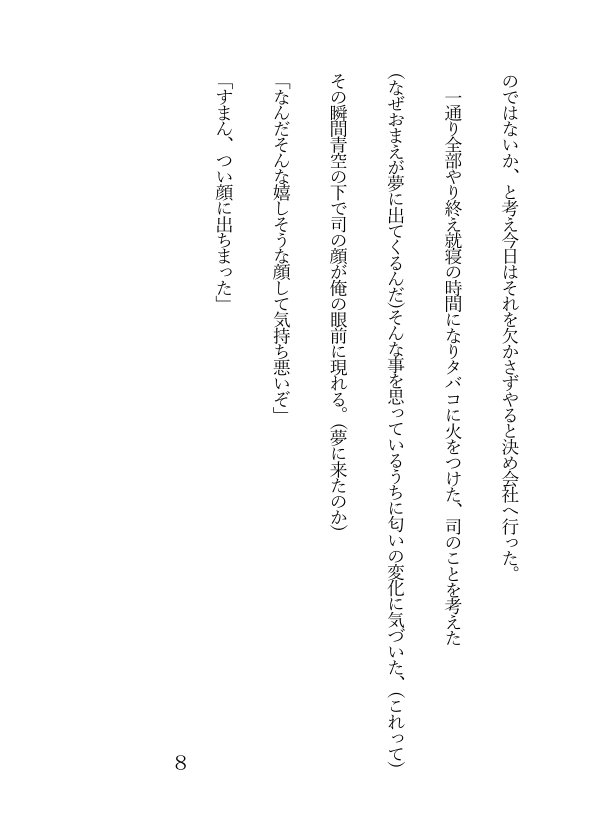 のではないか、と考え今日はそれを欠かさずやると決め会社へ行った。
一通り全部やり終え就寝の時間になりタバコに火をつけた、司のことを考えた
(なぜおまえが夢に出てくるんだ)そんな事を思っているうちに匂いの変化に気づいた、(これって)
その瞬間青空の下で司の顔が俺の眼前に現れる。(夢に来たのか)
「なんだそんな嬉しそうな顔して気持ち悪いぞ」
「すまん、つい顔に出ちまった」
8